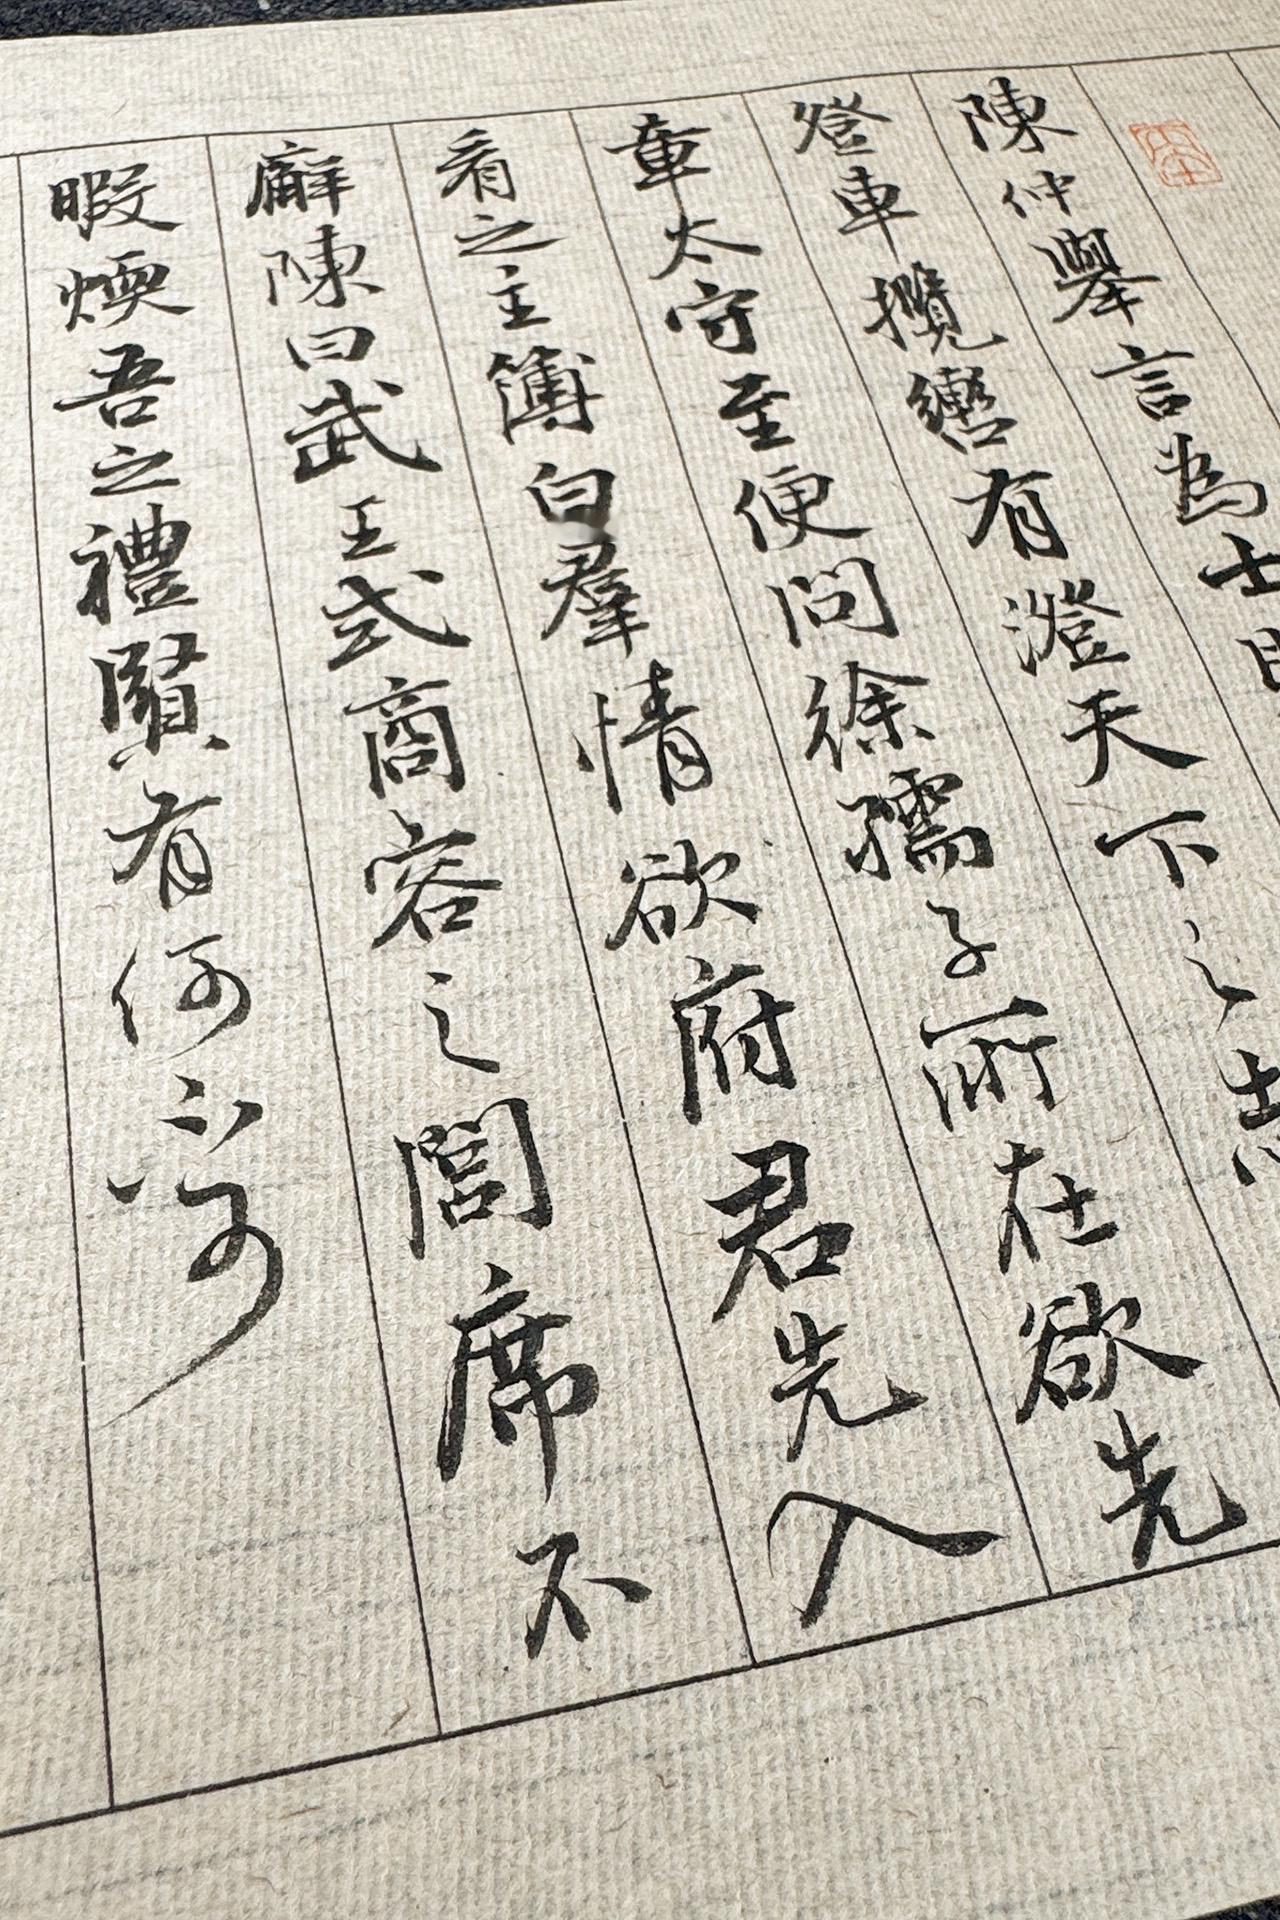 陳仲舉言為士
登車攬轡有澄天下之志
章太守至便問徐孺子所在欲先
看之主簿白羣情欲府君先入
廨陳曰武王式商容之閭席不
暇煗吾之禮賢有何不可